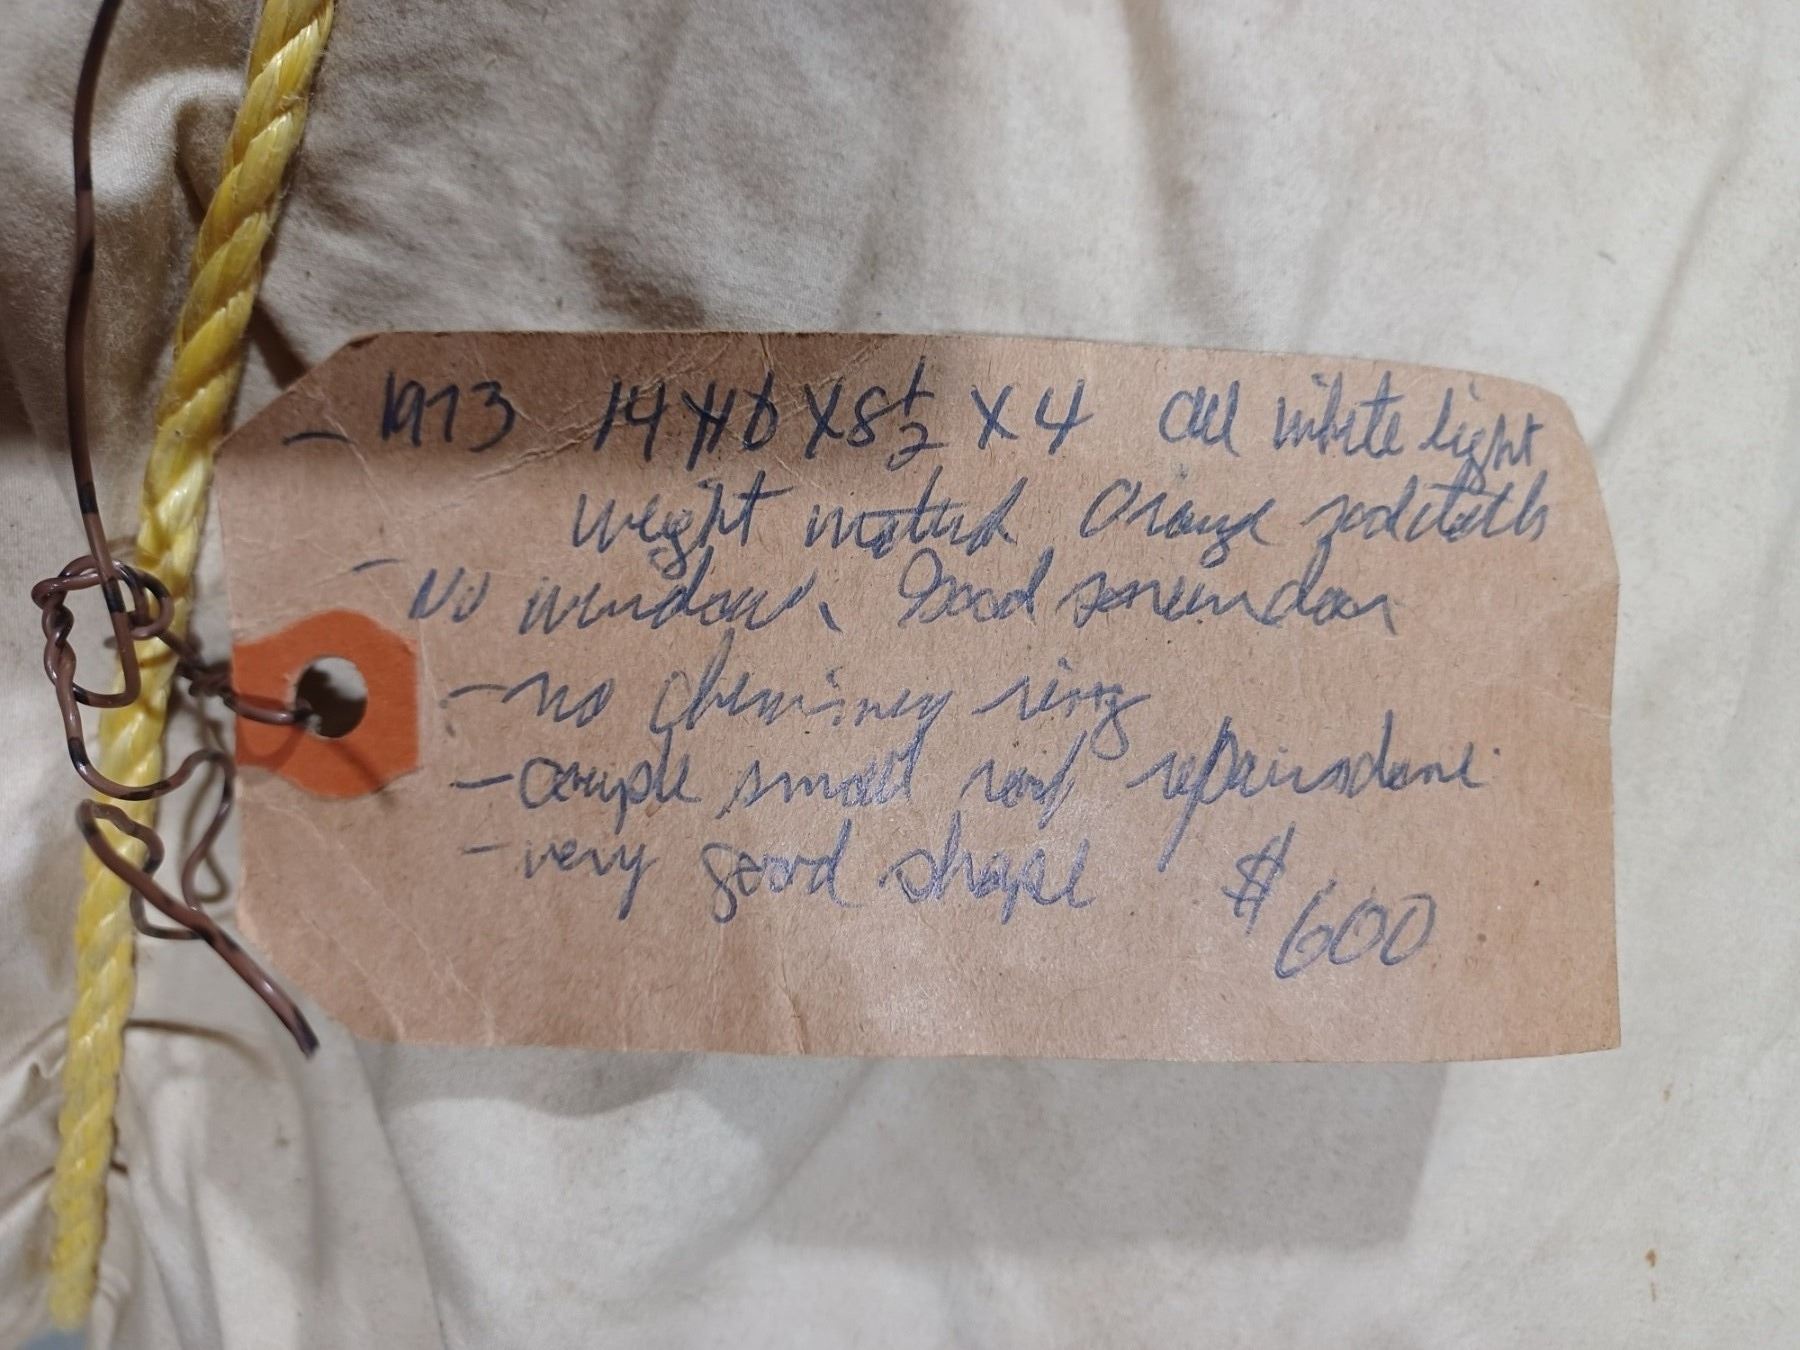 - 1973 14 X 16 X 8½ X 4 All white light
weight material Orange sodcloth
- No window, Good screendoor
- no chimney ring
- couple small roof repairs done
- very good shape $600